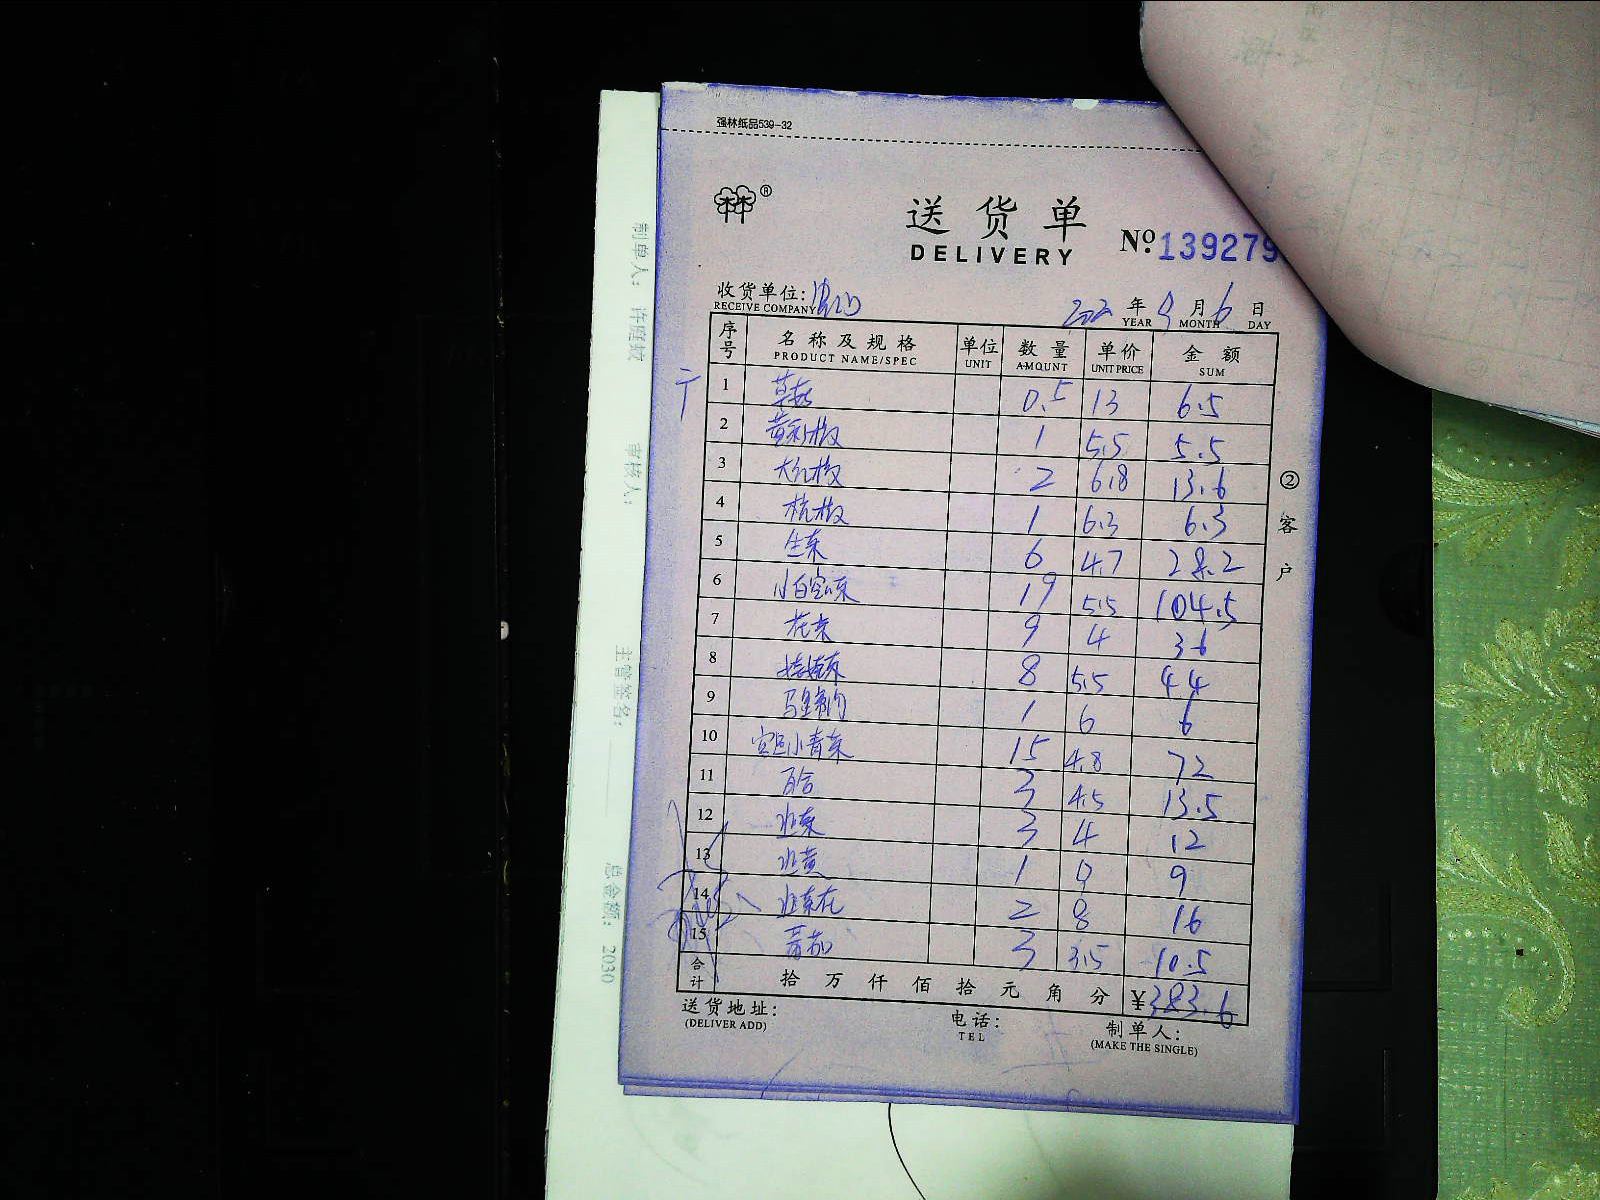 强林纸品539-32
®
送货单
DELIVERY
Nº.139279
收货单位:
RECEIVE COMPANY
年 9 月 6 日
YEAR MONTH DAY
序号 名称及规格 单位 数量 单价 金额
PRODUCT NAME/SPEC UNIT AMOUNT UNIT PRICE SUM
1 草菇 0.5 13 6.5
2 黄彩椒 1 5.5 5.5
3 大红椒 2 6.8 13.6
4 杭椒 1 6.3 6.3
5 生菜 6 4.7 28.2
6 小白空菜 19 5.5 104.5
7 花菜 9 4 36
8 娃娃菜 8 5.5 44
9 1 6 6
10 小青菜 15 4.8 72
11 3 4.5 13.5
12 韭菜 3 4 12
13 韭黄 1 9 9
14 韭菜花 2 8 16
15 番茄 3 3.5 10.5
合计 拾 万 仟 佰 拾 元 角 分 ¥383.6
送货地址:
(DELIVER ADD)
电话:
TEL
制单人:
(MAKE THE SINGLE)
②客户
制单人: 许庭
审核人:
主管签名:
总金额: 2030